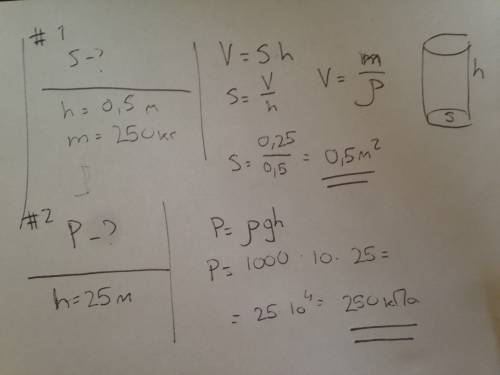 #1
S-?
h = 0,5 м
m = 250 кг
V = S h
S = V/h
V = m/ρ
S = 0,25/0,5 = 0,5 м²
h
S
#2
P-?
h = 25 м
P = ρgh
P = 1000 · 10 · 25 =
= 25 10⁴ = 250 кПа